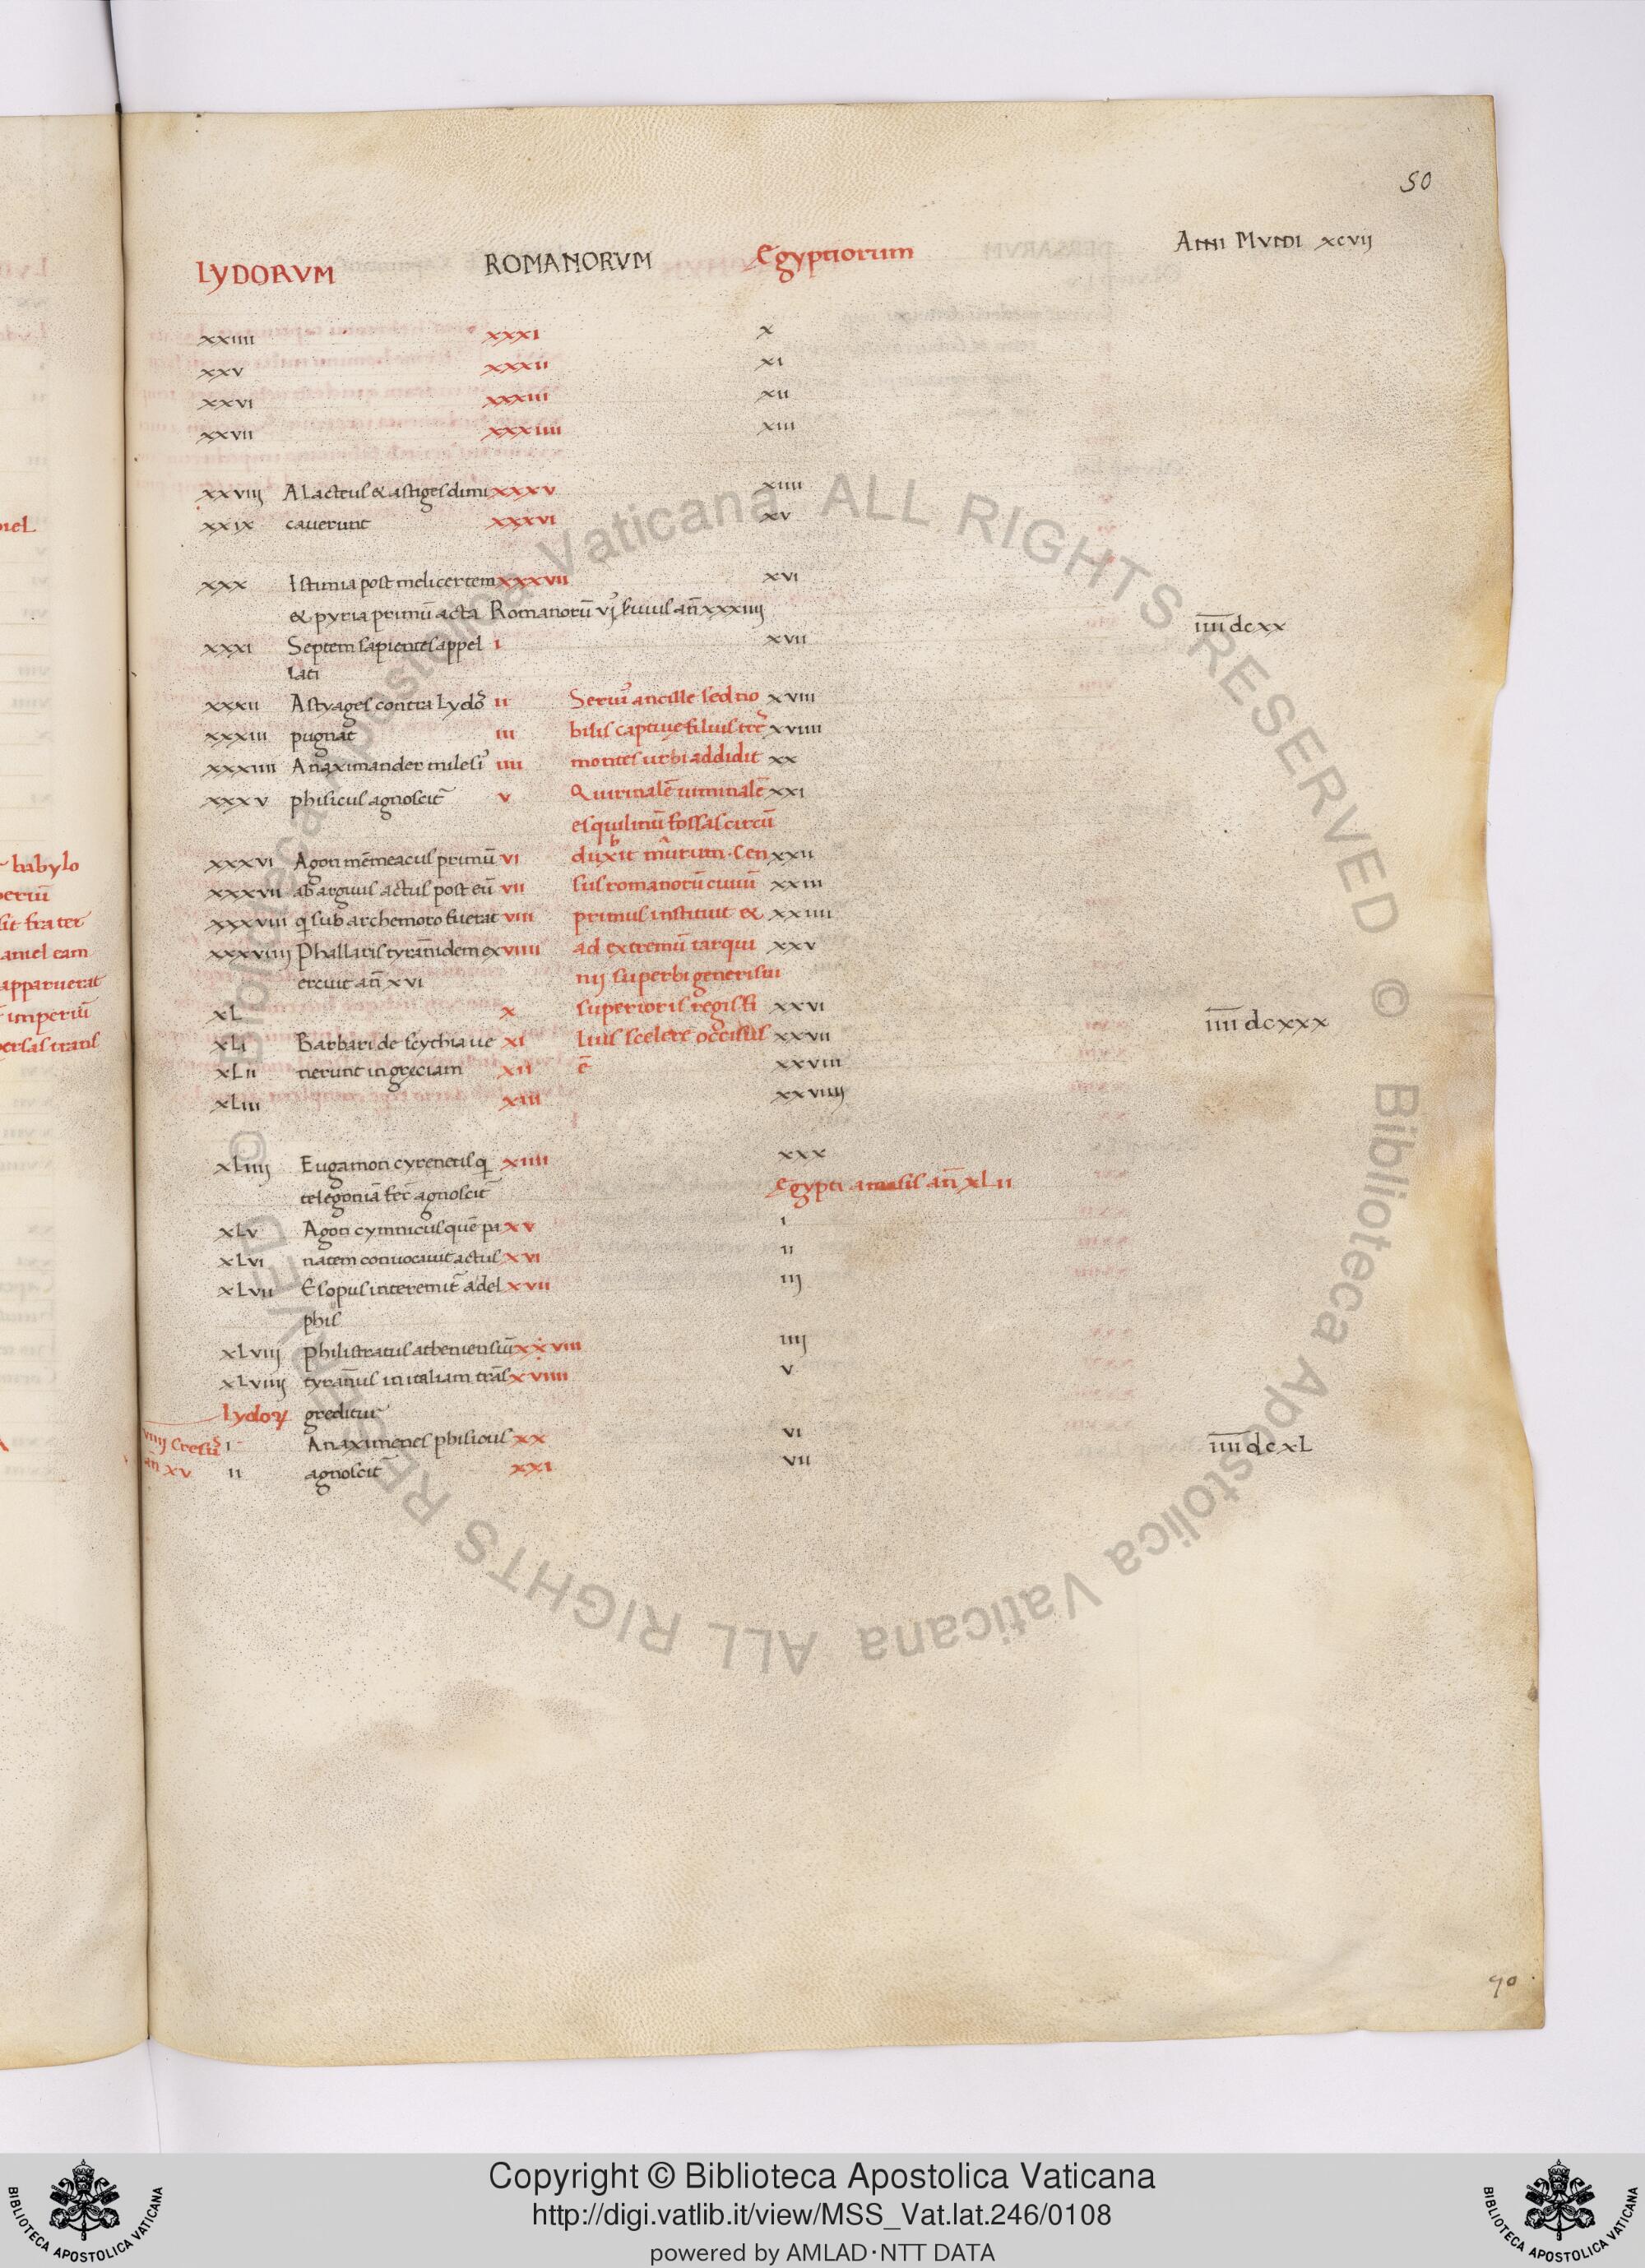 50
LYDORVM ROMANORVM Egyptiorum Anni Mvndi xcvij
xxiiii xxxi x
xxv xxxii xi
xxvi xxxiii xii
xxvii xxxiiii xiii
xxviij Alacteus & astiges dimi xxxv xiiii
xxix cauerunt xxxvi xv
xxx Istimia post melicertem xxxvii xvi
& pyria primū acta Romanorū vj ẜuius an̄ xxxiiij
īīīī dcxx
xxxi Septem sapientes appel i xvii
lati
xxxii Astyages contra Lydos ii Seruiꝰ ancille sed no xviii
xxxiii pugnat iii bilis captiue filius tres xviiii
xxxiiii Anaximander milesiꝰ iiii montes urbi addidit xx
xxxv phisicus agnoscit v Quirinalē uiminalē xxi
esquilinū fossas circū
xxxvi Agon mēmeacus primū vi duxit murum. Cen xxii
xxxvii ab arguis actus post eū vii sus romanorū ciuiū xxiii
xxxviii q sub archemoro fuerat viii primus instituit & xxiiii
xxxviiij Phallaris tyrannidem ex viiii ad extremū tarqui xxv
ercuit an̄ xvi nij superbi generi sui
xL x superioris regis fi xxvi
īīīī dcxxx
xLi Barbari de scythia ue xi lius scelere occisus xxvii
xLii nerunt in greciam xii ē xxviii
xLiii xiii xxviiij
xLiiij Eugamon cyreneus q xiiii xxx
telegoniā fec agnoscit Egypti amasis an̄ xLii
xLv Agon cymnicus quē pa xv i
xLvi natem conuocauit actus xvi ii
xLvii Esopus interemit a del xvii iij
phis
xLviij philistratus atheniensiū xxviii iiij
xLviiij tyrannus in italiam trās xviiii v
Lydoꝝ greditur
viiij Cresus i Anaximenes phisicus xx vi
īīīī dcxL
an̄ xv ii agnoscit xxi vii
iel
babylo
periū
sit frater
aniel eam
apparuerat
imperiū
persas trans
90
© Biblioteca Apostolica Vaticana ALL RIGHTS RESERVED
© Biblioteca Apostolica Vaticana ALL RIGHTS RESERVED
BIBLIOTECA APOSTOLICA VATICANA
Copyright © Biblioteca Apostolica Vaticana
http://digi.vatlib.it/view/MSS_Vat.lat.246/0108
powered by AMLAD·NTT DATA
BIBLIOTECA APOSTOLICA VATICANA